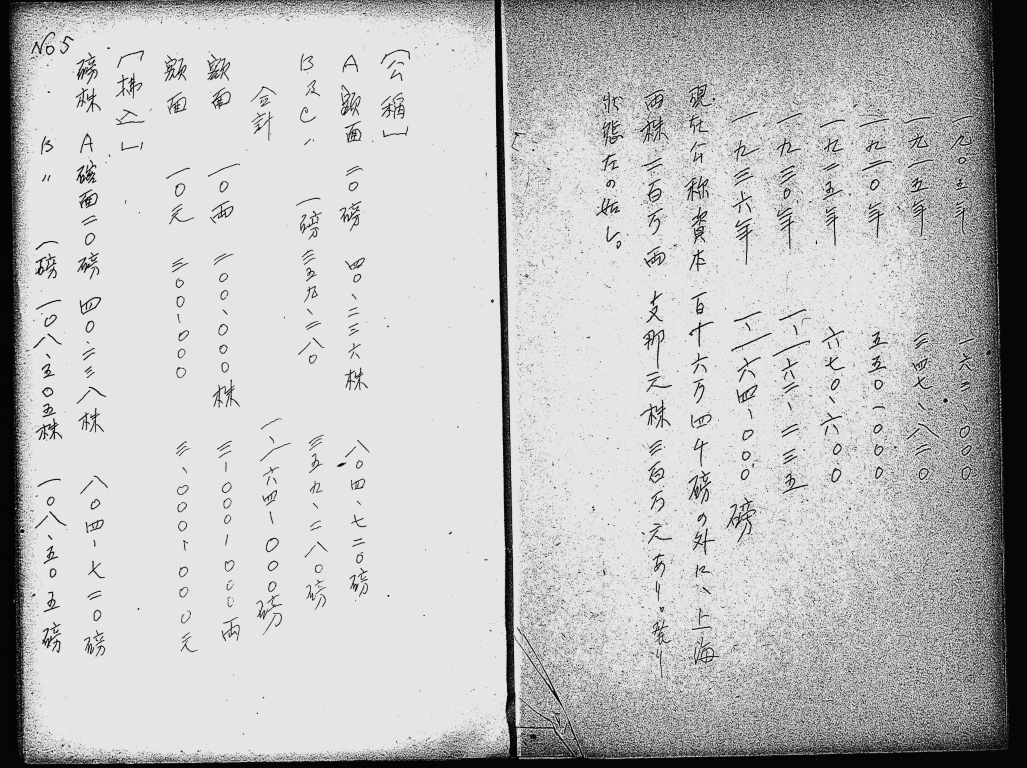 一九〇五年 一六二、〇〇〇
一九一五年 三四七、八三〇
一九二〇年 五五〇、〇〇〇
一九二五年 六七〇、六〇〇
一九三〇年 一、一六二、二三五
一九三六年 一、一六四、〇〇〇磅
現在公称資本 百十六万四千磅の外に、上海
両株二百万両 支那元株三百万元あり。発り
状態左の如し。
「公稱」
A 額面 二〇磅 四〇、二三六株 八〇四、七二〇磅
B及C〃 一磅 三五九、二八〇 三五九、二八〇磅
合計 一、一六四、〇〇〇磅
額面 一〇両 二〇〇、〇〇〇株 二、〇〇〇、〇〇〇両
額面 一〇元 三〇〇、〇〇〇 三、〇〇〇、〇〇〇元
「拂込」
磅株 A額面二〇磅 四〇、二三八株 八〇四、七二〇磅
B 〃 一磅 一〇八、五〇五株 一〇八、五〇五磅
No 5